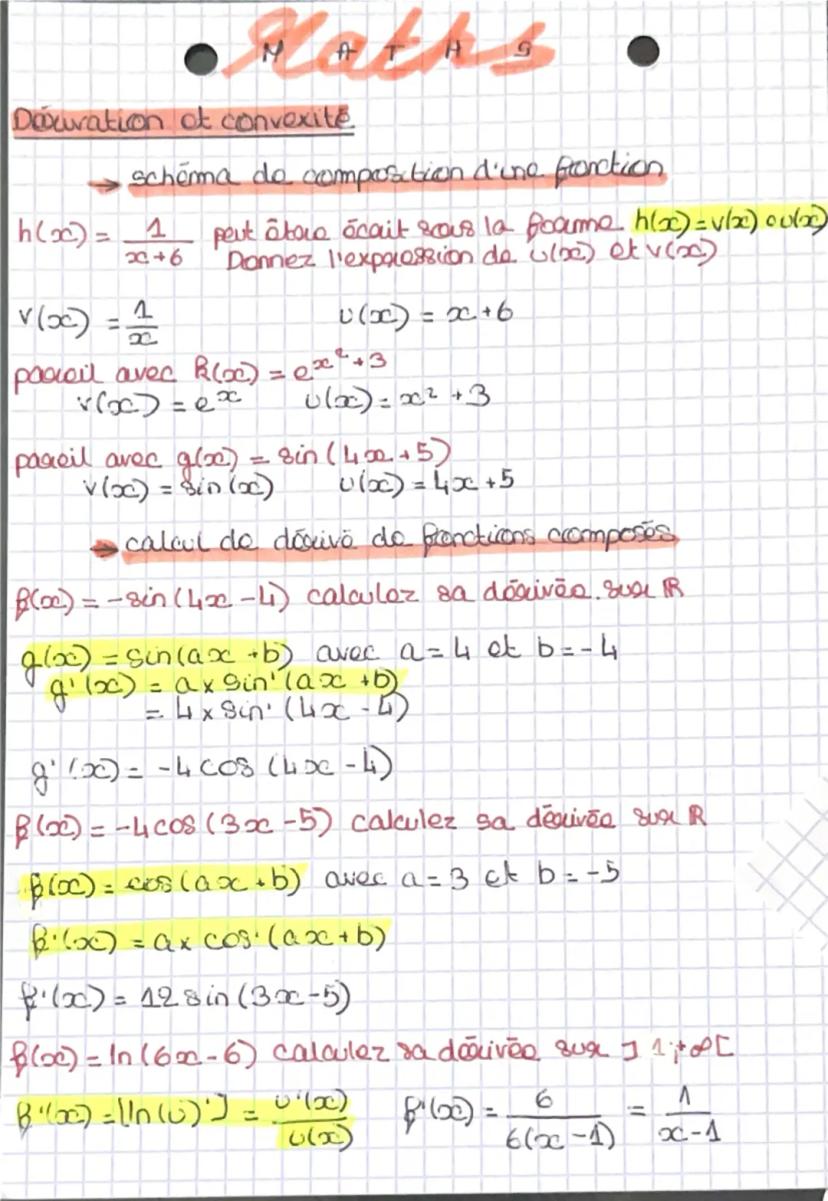 Maths
M A T H S
Dérivation et convexité
→ schéma de composition d'une fonction
h(x) = 1/(x+6) peut être écrit sous la forme h(x) = v(x) o u(x)
Donnez l'expression de u(x) et v(x)
v(x) = 1/x u(x) = x+6
pareil avec f(x) = e^(x²+3)
v(x) = e^x u(x) = x² + 3
pareil avec g(x) = sin(4x+5)
v(x) = sin(x) u(x) = 4x+5
→ calcul de dérivé de fonctions composés
f(x) = -sin(4x-4) calculez sa dérivée sur ℝ
g(x) = sin(ax+b) avec a=4 et b=-4
g'(x) = a x sin'(ax+b)
= 4 x sin'(4x-4)
g'(x) = -4cos(4x-4)
f(x) = -4cos(3x-5) calculez sa dérivée sur ℝ
f(x) = cos(ax+b) avec a=3 et b=-5
f'(x) = a x cos'(ax+b)
f'(x) = 12sin(3x-5)
f(x) = ln(6x-6) calculez sa dérivée sur ]1;+∞[
f'(x) = [ln(u)'] = u'(x)/u(x) f'(x) = 6/(6(x-1)) = 1/(x-1)